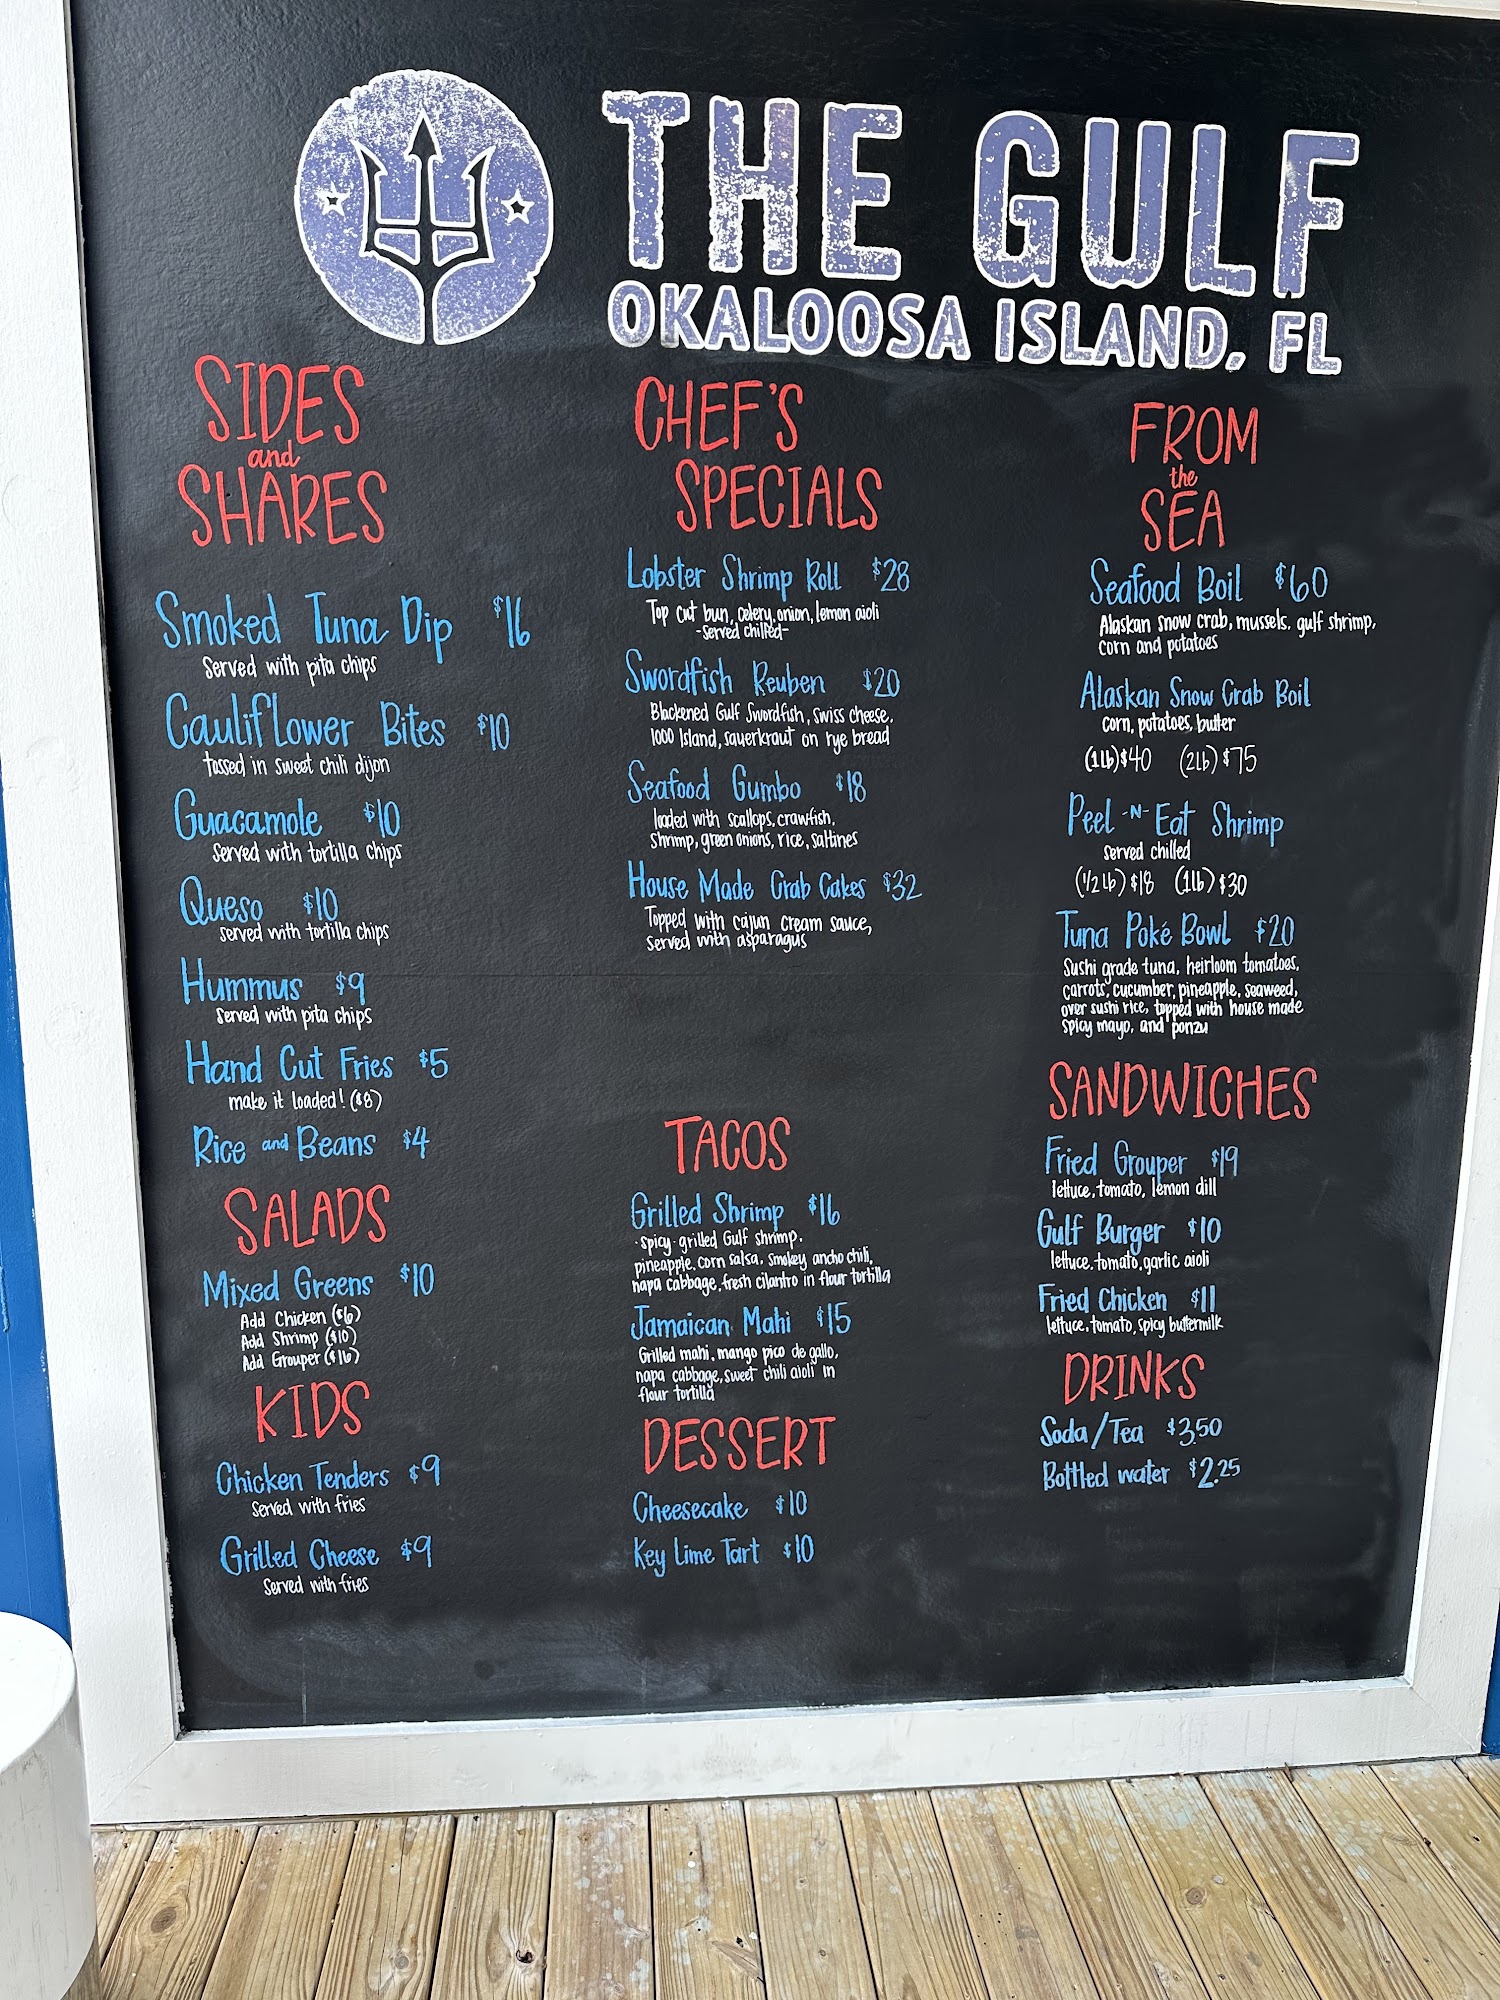 THE GULF
OKALOOSA ISLAND, FL
SIDES
and
SHARES
Smoked Tuna Dip $16
Served with pita chips
Cauliflower Bites $10
tossed in sweet chili dijon
Guacamole $10
Served with tortilla chips
Queso $10
served with tortilla chips
Hummus $9
Served with pita chips
Hand Cut Fries $5
make it loaded! ($8)
Rice and Beans $4
SALADS
Mixed Greens $10
Add Chicken ($6)
Add Shrimp ($10)
Add Grouper ($16)
KIDS
Chicken Tenders $9
Served with fries
Grilled Cheese $9
Served with fries
CHEF'S
SPECIALS
Lobster Shrimp Roll $28
Top cut bun, celery, onion, lemon aioli
-served chilled-
Swordfish Reuben $20
Blackened Gulf Swordfish, Swiss cheese,
1000 Island, sauerkraut on rye bread
Seafood Gumbo $18
loaded with scallops, crawfish,
shrimp, green onions, rice, saltines
House Made Crab Cakes $32
Topped with cajun cream sauce,
served with asparagus
TACOS
Grilled Shrimp $16
spicy grilled Gulf shrimp,
pineapple, corn salsa, smokey ancho chili,
napa cabbage, fresh cilantro in flour tortilla
Jamaican Mahi $15
Grilled mahi, mango pico de gallo,
napa cabbage, sweet chili aioli in
flour tortilla
DESSERT
Cheesecake $10
Key Lime Tart $10
FROM
the
SEA
Seafood Boil $60
Alaskan snow crab, mussels, gulf shrimp,
corn and potatoes
Alaskan Snow Crab Boil
corn, potatoes, butter
(1lb) $40 (2lb) $75
Peel -N- Eat Shrimp
served chilled
(1/2 lb) $18 (1lb) $30
Tuna Poké Bowl $20
Sushi grade tuna, heirloom tomatoes,
carrots, cucumber, pineapple, seaweed,
over sushi rice, topped with house made
spicy mayo, and ponzu
SANDWICHES
Fried Grouper $19
lettuce, tomato, lemon dill
Gulf Burger $10
lettuce, tomato, garlic aioli
Fried Chicken $11
lettuce, tomato, spicy buttermilk
DRINKS
Soda/Tea $3.50
Bottled water $2.25